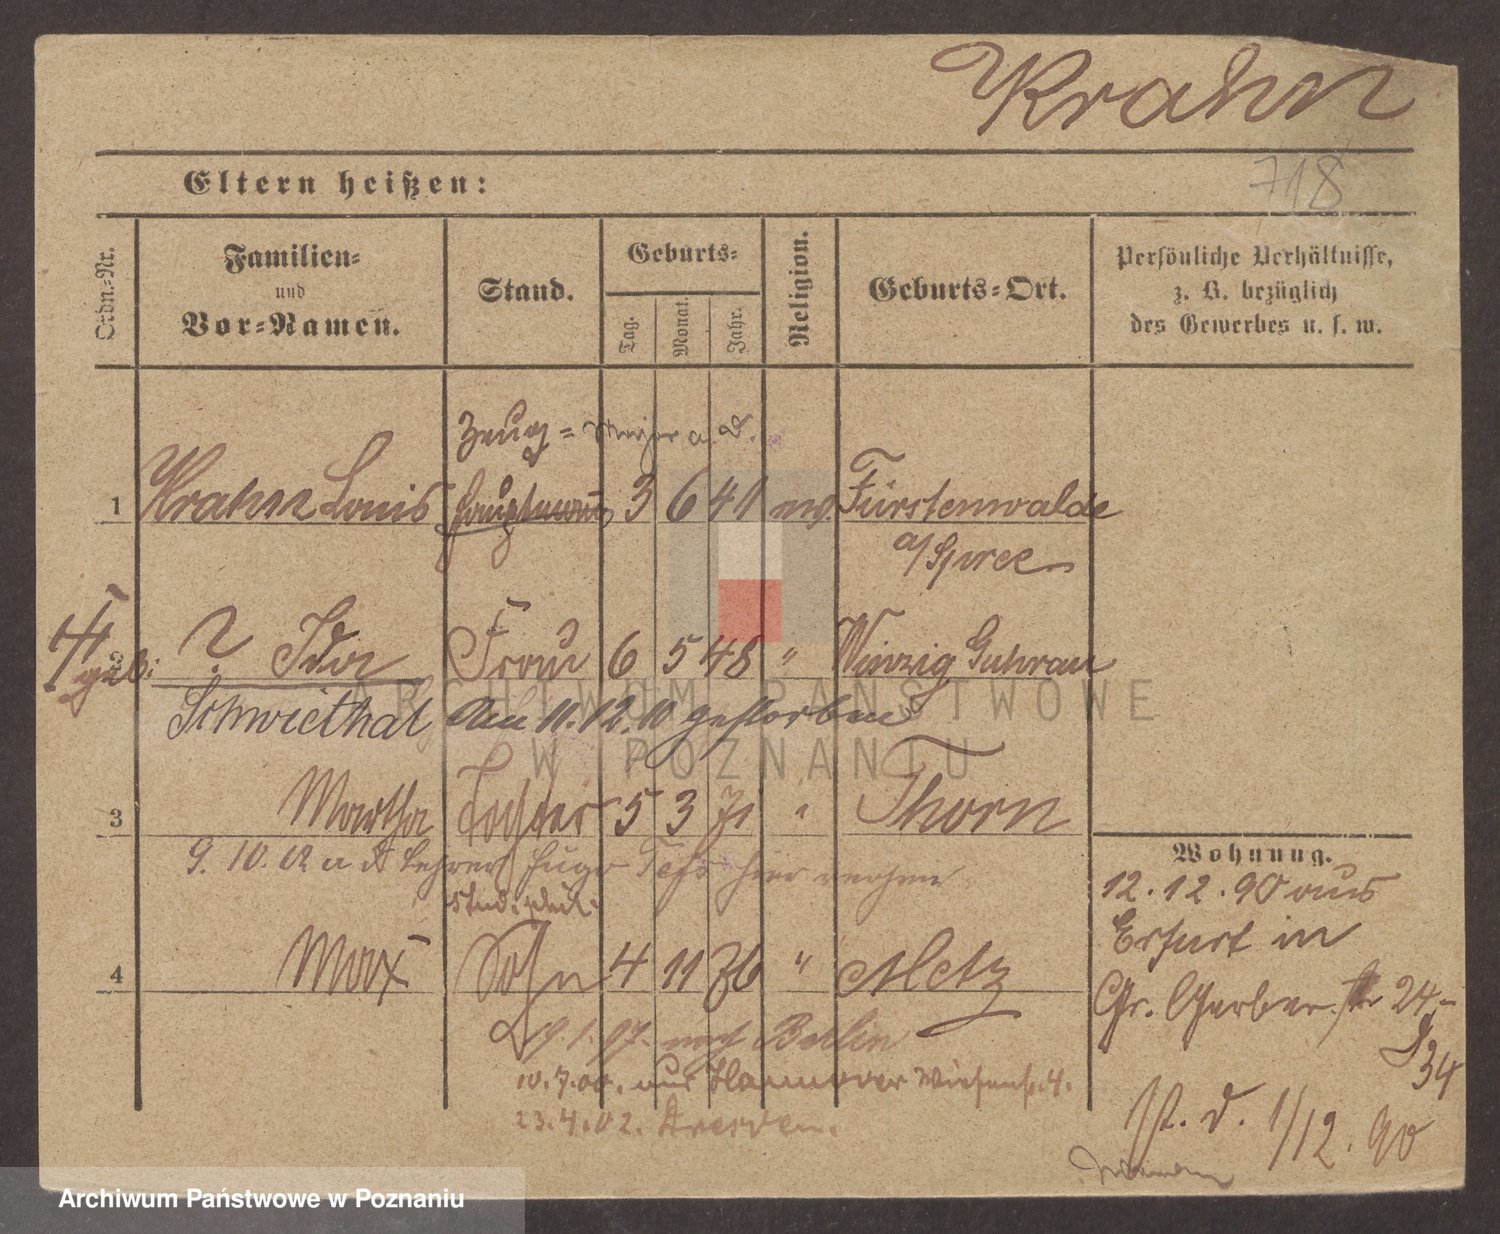 Krahn
718
Eltern heißen:
Ordn.-Nr.
Familien-
und
Vor-Namen.
Stand.
Geburts-
Tag.
Monat.
Jahr.
Religion.
Geburts-Ort.
Persönliche Verhältnisse,
z. B. bezüglich
des Gewerbes u. s. w.
Zeug- Major a. D.
1 Krahn Louis Hauptmann 3 6 41 ev. Fürstenwalde
a/Spree
2 ? Ida Frau 6 5 48 " Winzig Guhrau
geb:
Schwiethal Am 11.12.10 gestorben
3 Martha Tochter 5 3 71 " Thorn
9. 10. 02 Lehrer Hugo hier
stud.
4 Max Sohn 4 11 76 " Metz
9.1.97. nach Berlin
10.7.00. aus Hannover Wiesenstr. 4.
23.4.02. Dresden.
Wohnung.
12.12.90 aus
Erfurt in
Gr. Gerber str 24,
34
St. d. 1/12.90
ARCHIWUM PAŃSTWOWE
W POZNANIU
Archiwum Państwowe w Poznaniu